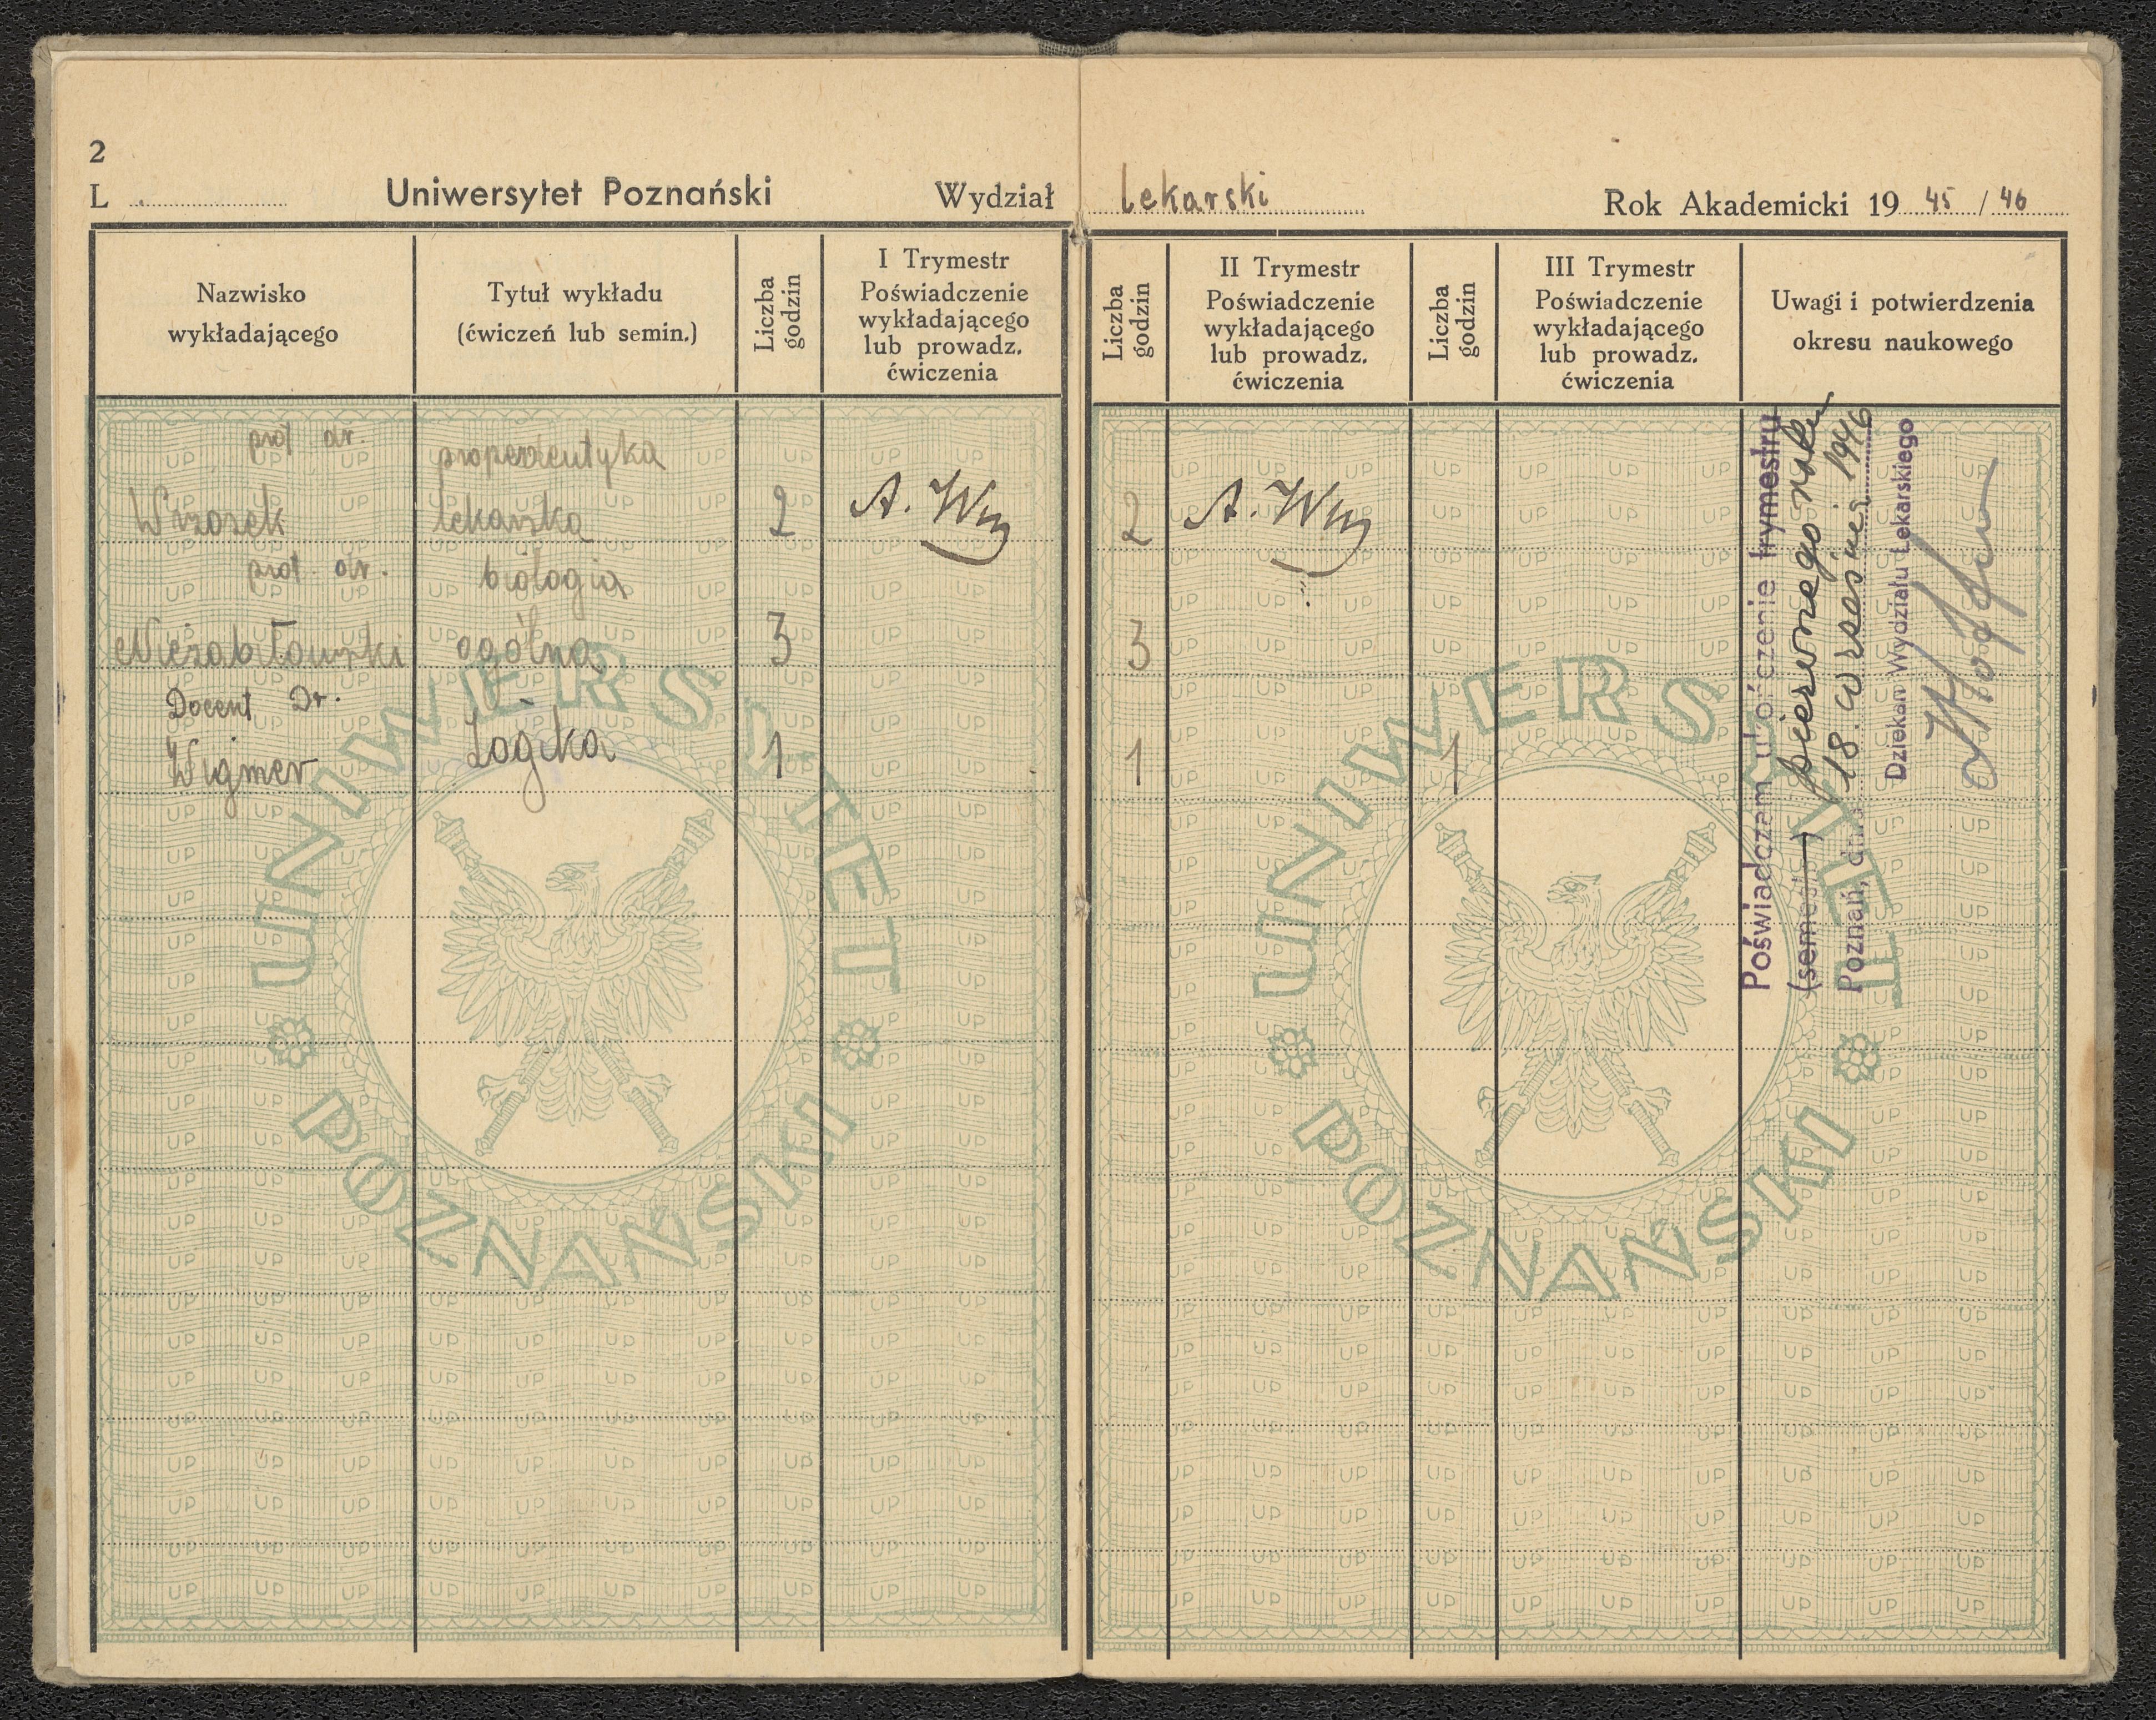 2
L
Uniwersytet Poznański Wydział lekarski Rok Akademicki 19 45 / 46
Nazwisko
wykładającego
Tytuł wykładu
(ćwiczeń lub semin.)
Liczba
godzin
I Trymestr
Poświadczenie
wykładającego
lub prowadz.
ćwiczenia
Liczba
godzin
II Trymestr
Poświadczenie
wykładającego
lub prowadz.
ćwiczenia
Liczba
godzin
III Trymestr
Poświadczenie
wykładającego
lub prowadz.
ćwiczenia
Uwagi i potwierdzenia
okresu naukowego
prof. dr. propedeutyka
Wrzosek lekarska 2 A. Wrz 2 A. Wrz
prof. dr. biologia
Niezabitowski ogólna 3 3
Docent Dr.
Wigner Logika 1 1 1
Poświadczam ukończenie trymestru
(semestru) pierwszego roku
Poznań, dnia 18. września 1946
Dziekan Wydziału Lekarskiego
UNIWERSYTET POZNAŃSKI
UNIWERSYTET POZNAŃSKI